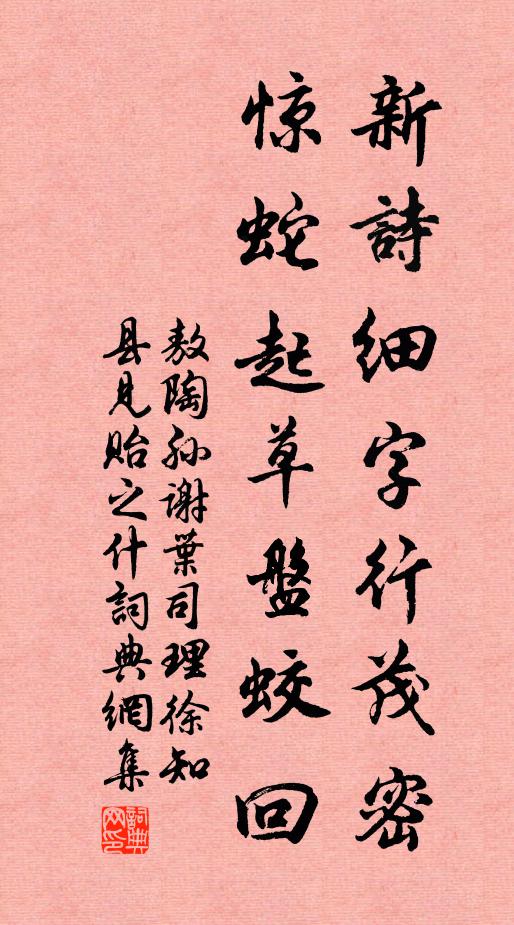 新詩细字行茂密
惊蛇起草盤蛟回
敖陶孙谢葉司理徐知
县見贻之什詞典網集
詞典网印